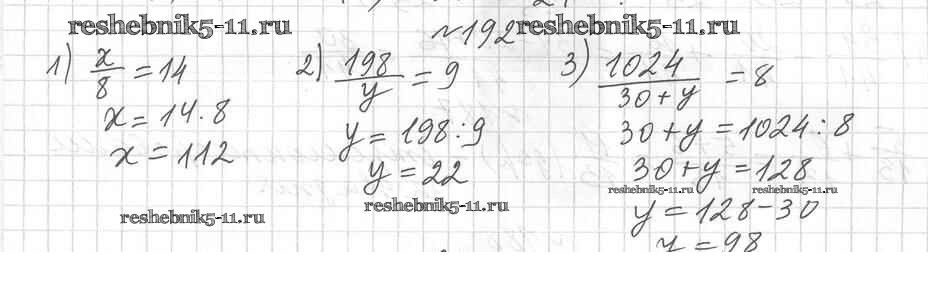 reshebnik5-11.ru
№192
reshebnik5-11.ru
1) x/8 = 14
x = 14·8
x = 112
reshebnik5-11.ru
2) 198/y = 9
y = 198:9
y = 22
reshebnik5-11.ru
3) 1024/30+y = 8
30+y = 1024:8
30+y = 128
reshebnik5-11.ru
reshebnik5-11.ru
y = 128-30
y = 98